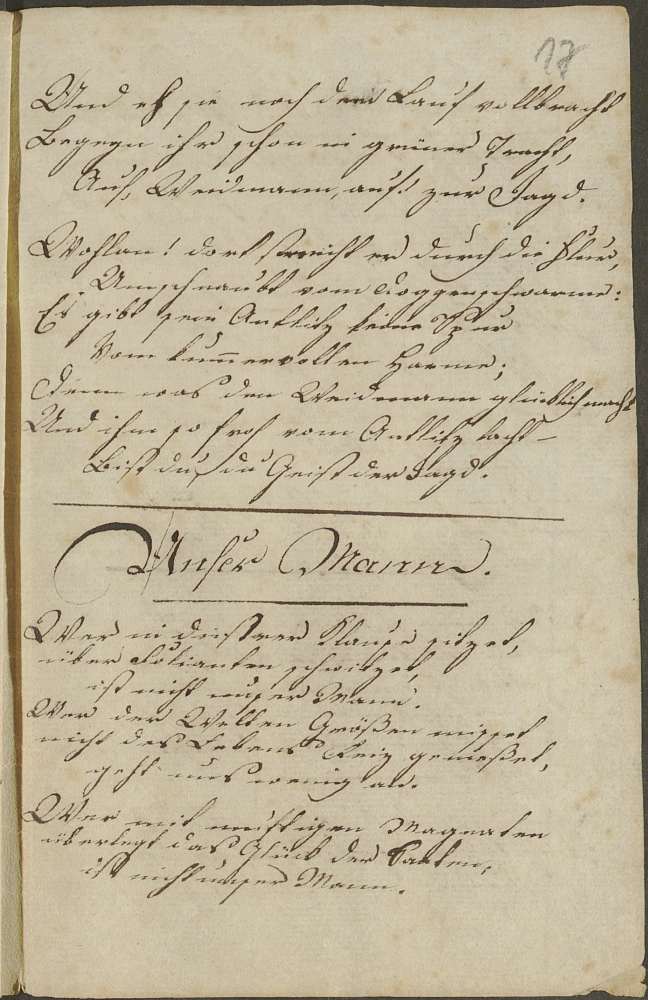 17
Und eh sie noch den Lauf vollbracht
Begegn ihr schon in grüner Tracht,
Auf, Weidmann, auf! zur Jagd.
Wohlan! dort streicht er durch die Flur,
Umschnaubt vom Doggenschwarme:
Es gibt sein Antlitz keine Spur
Vom kummervollen Harme;
Denn was den Weidmann glücklich macht
Und ihm so froh vom Antlitz lacht –
Bist du, du Geist der Jagd.
Unser Mann.
Wer in düstrer Klause sitzet,
über Folianten schwitzet,
ist nicht unser Mann.
Wer der Welten Größen misset
nicht des Lebens Reiz genießet,
geht uns wenig an.
Wer mit Magnaten
überlegt das Glück der Saaten,
ist nicht unser Mann.